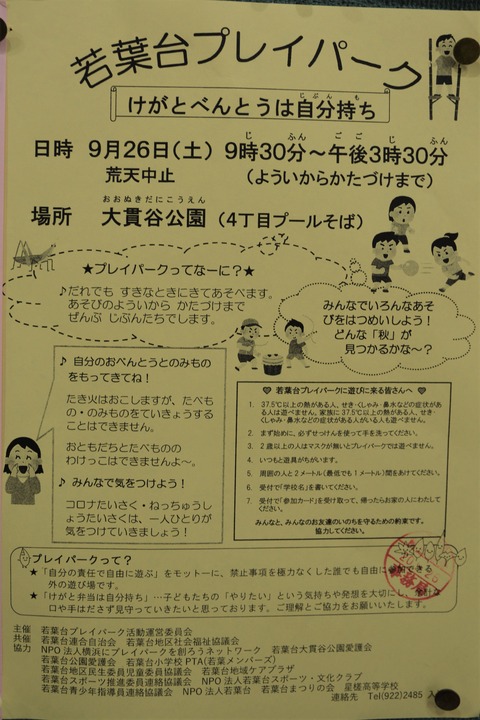 若葉台プレイパーク
けがとべんとうは自分持ち
日時 9月26日(土) 9時30分～午後3時30分
荒天中止 (よういからかたづけまで)
場所 大貫谷公園 (4丁目プールそば)
★プレイパークってなーに？★
♪だれでも すきなときにきてあそべます。
あそびのよういから かたづけまで
ぜんぶ じぶんたちでします。
みんなでいろんなあそ
びをはつめいしよう！
どんな「秋」が
見つかるかな～？
♪ 自分のおべんとうとのみもの
をもってきてね！
たき火はおこしますが、たべも
の・のみものをていきょうする
ことはできません。
おともだちとたべものの
わけっこはできませんよ～。
♪ みんなで気をつけよう！
コロナたいさく・ねっちゅうし
ょうたいさくは、一人ひとりが気
をつけていきましょう！
♡ 若葉台プレイパークに遊びに来る皆さんへ ♡
1. 37.5℃以上の熱がある人、せき・くしゃみ・鼻水などの症状があ
る人は遊べません。家族に37.5℃以上の熱がある人、せき・
くしゃみ・鼻水などの症状がある人がいる人も遊べません。
2. まず始めに、必ずせっけんを使って手を洗ってください。
3. 2歳以上の人はマスクが無いとプレイパークでは遊べません。
4. いつもと遊具がちがいます。
5. 周囲の人と2メートル(最低でも1メートル)間をあけてください。
6. 受付で「学校名」を書いてください。
7. 受付で「参加カード」を受け取って、帰ったらお家の人にわたして
ください。
みんなと、みんなのお友達のいのちを守るための約束です。
協力してください。
プレイパークって？
★「自分の責任で自由に遊ぶ」をモットーに、禁止事項を極力なくした誰でも自由に参加できる
外の遊び場です。
★「けがと弁当は自分持ち」…子どもたちの「やりたい」という気持ちや発想を大切にし、余計な
口や手はださず見守っていきたいと思っております。ご理解とご協力をお願いいたします。
主催 若葉台プレイパーク活動運営委員会
共催 若葉台連合自治会 若葉台地区社会福祉協議会
協力 NPO法人横浜にプレイパークを創ろうネットワーク 若葉台大貫谷公園愛護会
若葉台公園愛護会 若葉台小学校PTA(若葉メンバーズ)
若葉台地区民生委員児童委員協議会 若葉台地域ケアプラザ
若葉台スポーツ推進委員連絡協議会 NPO法人若葉台スポーツ・文化クラブ
若葉台青少年指導員連絡協議会 NPO法人若葉台 若葉台まつりの会 星槎高等学校
連絡先 Tel(922)2485